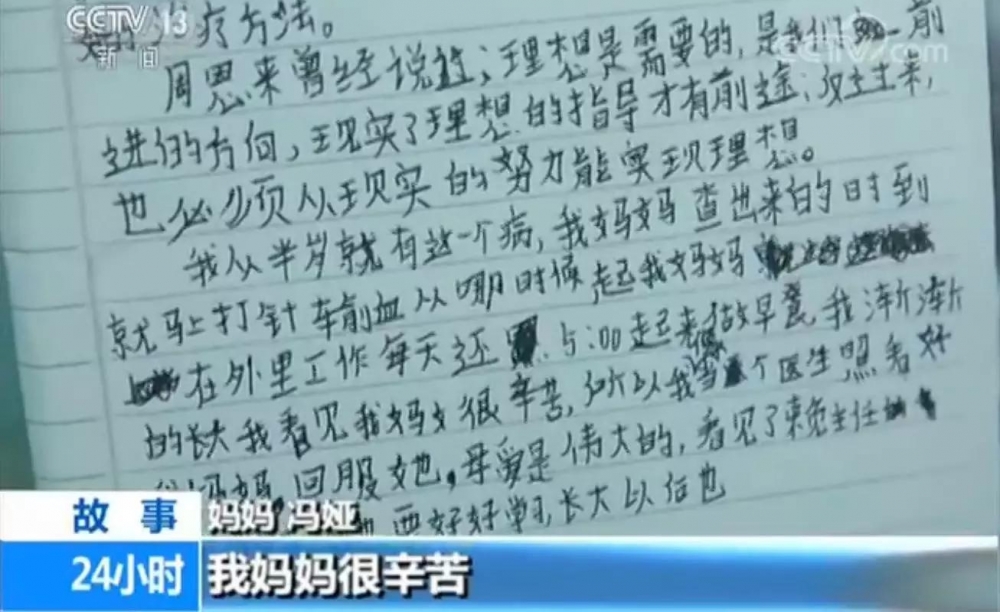 CCTV 13
新闻
CCTV.com
疗方法。
周恩来曾经说过;理想是需要的,是我们 前
进的方向,现实了理想的指导才有前途;反过来,
也必须从现实的努力能实现理想。
我从半岁就有这一个病,我妈妈查出来的时到
就马上打针输血从哪时候起我妈妈
在外里工作每天还 5:00起来做早餐我渐渐
的长大我看见我妈妈很辛苦,所以我当个医生照看好
妈妈,回服她,母爱是伟大的,看见了赖主任
要好好学习,长大以后也
故事 妈妈 冯娅
24小时 我妈妈很辛苦